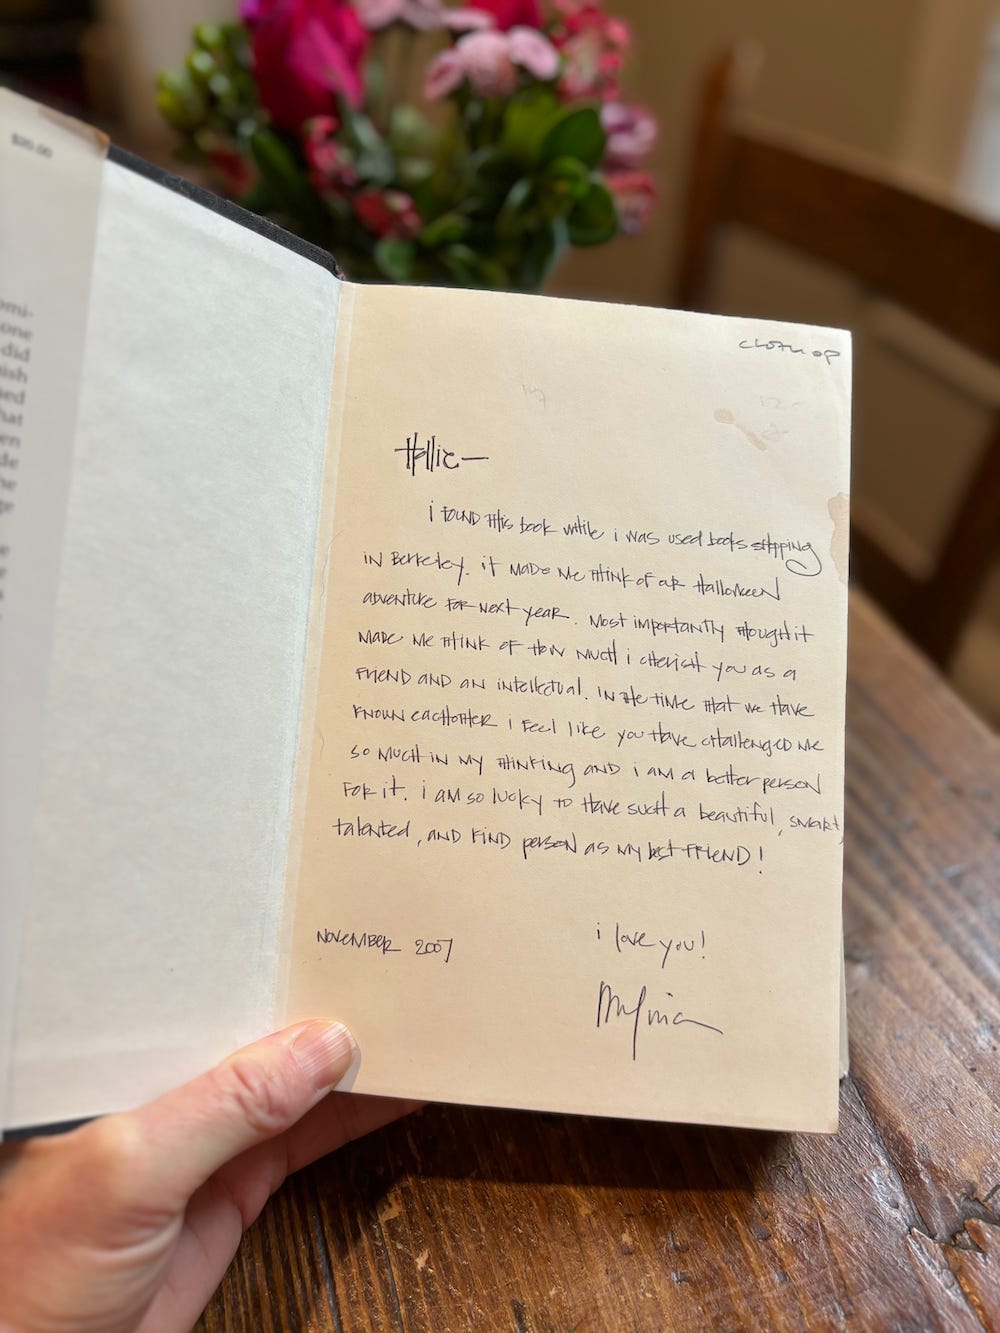 $20.00
omi-
one
did
nish
ned
hat
en
de
ne
ge
e
CLOTH OP
Hollie —
i found this book while i was used books shopping
in Berkeley. it made me think of our Halloween
adventure for next year. Most importantly though it
made me think of how much i cherish you as a
friend and an intellectual. In the time that we have
known eachother i feel like you have challenged me
so much in my thinking and i am a better person
for it. i am so lucky to have such a beautiful, smart,
talented, and kind person as my best friend!
November 2007
i love you!